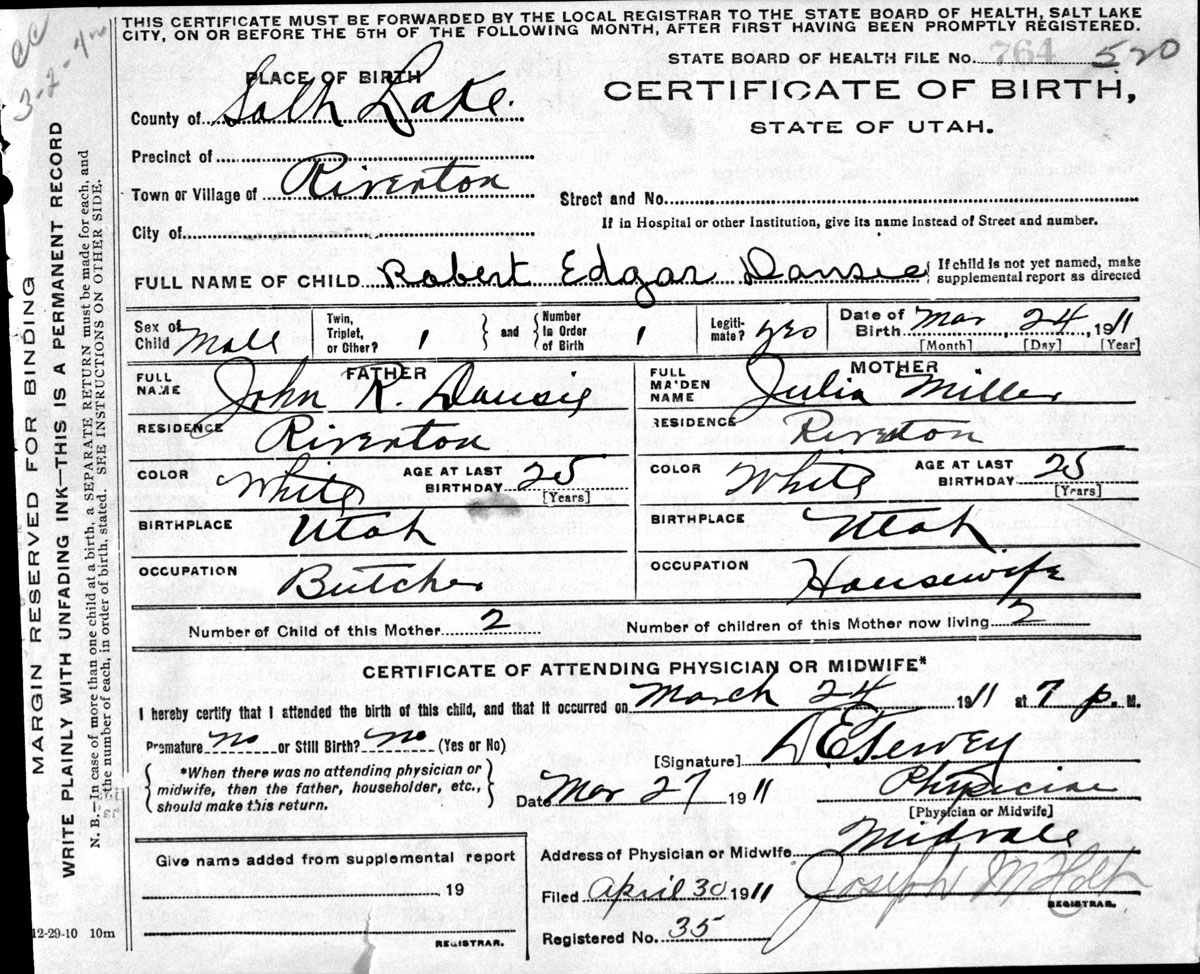 THIS CERTIFICATE MUST BE FORWARDED BY THE LOCAL REGISTRAR TO THE STATE BOARD OF HEALTH, SALT LAKE
CITY, ON OR BEFORE THE 5TH OF THE FOLLOWING MONTH, AFTER FIRST HAVING BEEN PROMPTLY REGISTERED.
STATE BOARD OF HEALTH FILE No. 764 520
PLACE OF BIRTH
CERTIFICATE OF BIRTH,
County of Salt Lake.
STATE OF UTAH.
Precinct of
Town or Village of Riverton
Street and No.
City of
If in Hospital or other Institution, give its name instead of Street and number.
FULL NAME OF CHILD Robert Edgar Dansie { If child is not yet named, make supplemental report as directed
Sex of Child Male Twin, Triplet, or Other? 1 } and { Number In Order of Birth 1 Legiti-mate? yes Date of Birth Mar, 24, 1911
[Month] [Day] [Year]
FATHER
MOTHER
FULL NAME John R. Dansie
FULL MAIDEN NAME Julia Miller
RESIDENCE Riverton
RESIDENCE Riverton
COLOR White AGE AT LAST BIRTHDAY 25 [Years]
COLOR White AGE AT LAST BIRTHDAY 25 [Years]
BIRTHPLACE Utah
BIRTHPLACE Utah
OCCUPATION Butcher
OCCUPATION Housewife
Number of Child of this Mother 2 Number of children of this Mother now living 2
CERTIFICATE OF ATTENDING PHYSICIAN OR MIDWIFE*
I hereby certify that I attended the birth of this child, and that it occurred on March 24 1911 at 7 p. M.
Premature no or Still Birth? no (Yes or No)
[Signature]
*When there was no attending physician or
midwife, then the father, householder, etc.,
should make this return.
Date Mar 27 1911 Physician
[Physician or Midwife]
Address of Physician or Midwife Midvale
Give name added from supplemental report
19
REGISTRAR.
Filed April 30 1911 Joseph M Holt
REGISTRAR.
Registered No. 35
12-29-10 10m
MARGIN RESERVED FOR BINDING
WRITE PLAINLY WITH UNFADING INK—THIS IS A PERMANENT RECORD
N. B.—In case of more than one child at a birth, a SEPARATE RETURN must be made for each, and
the number of each, in order of birth, stated. SEE INSTRUCTIONS ON OTHER SIDE.